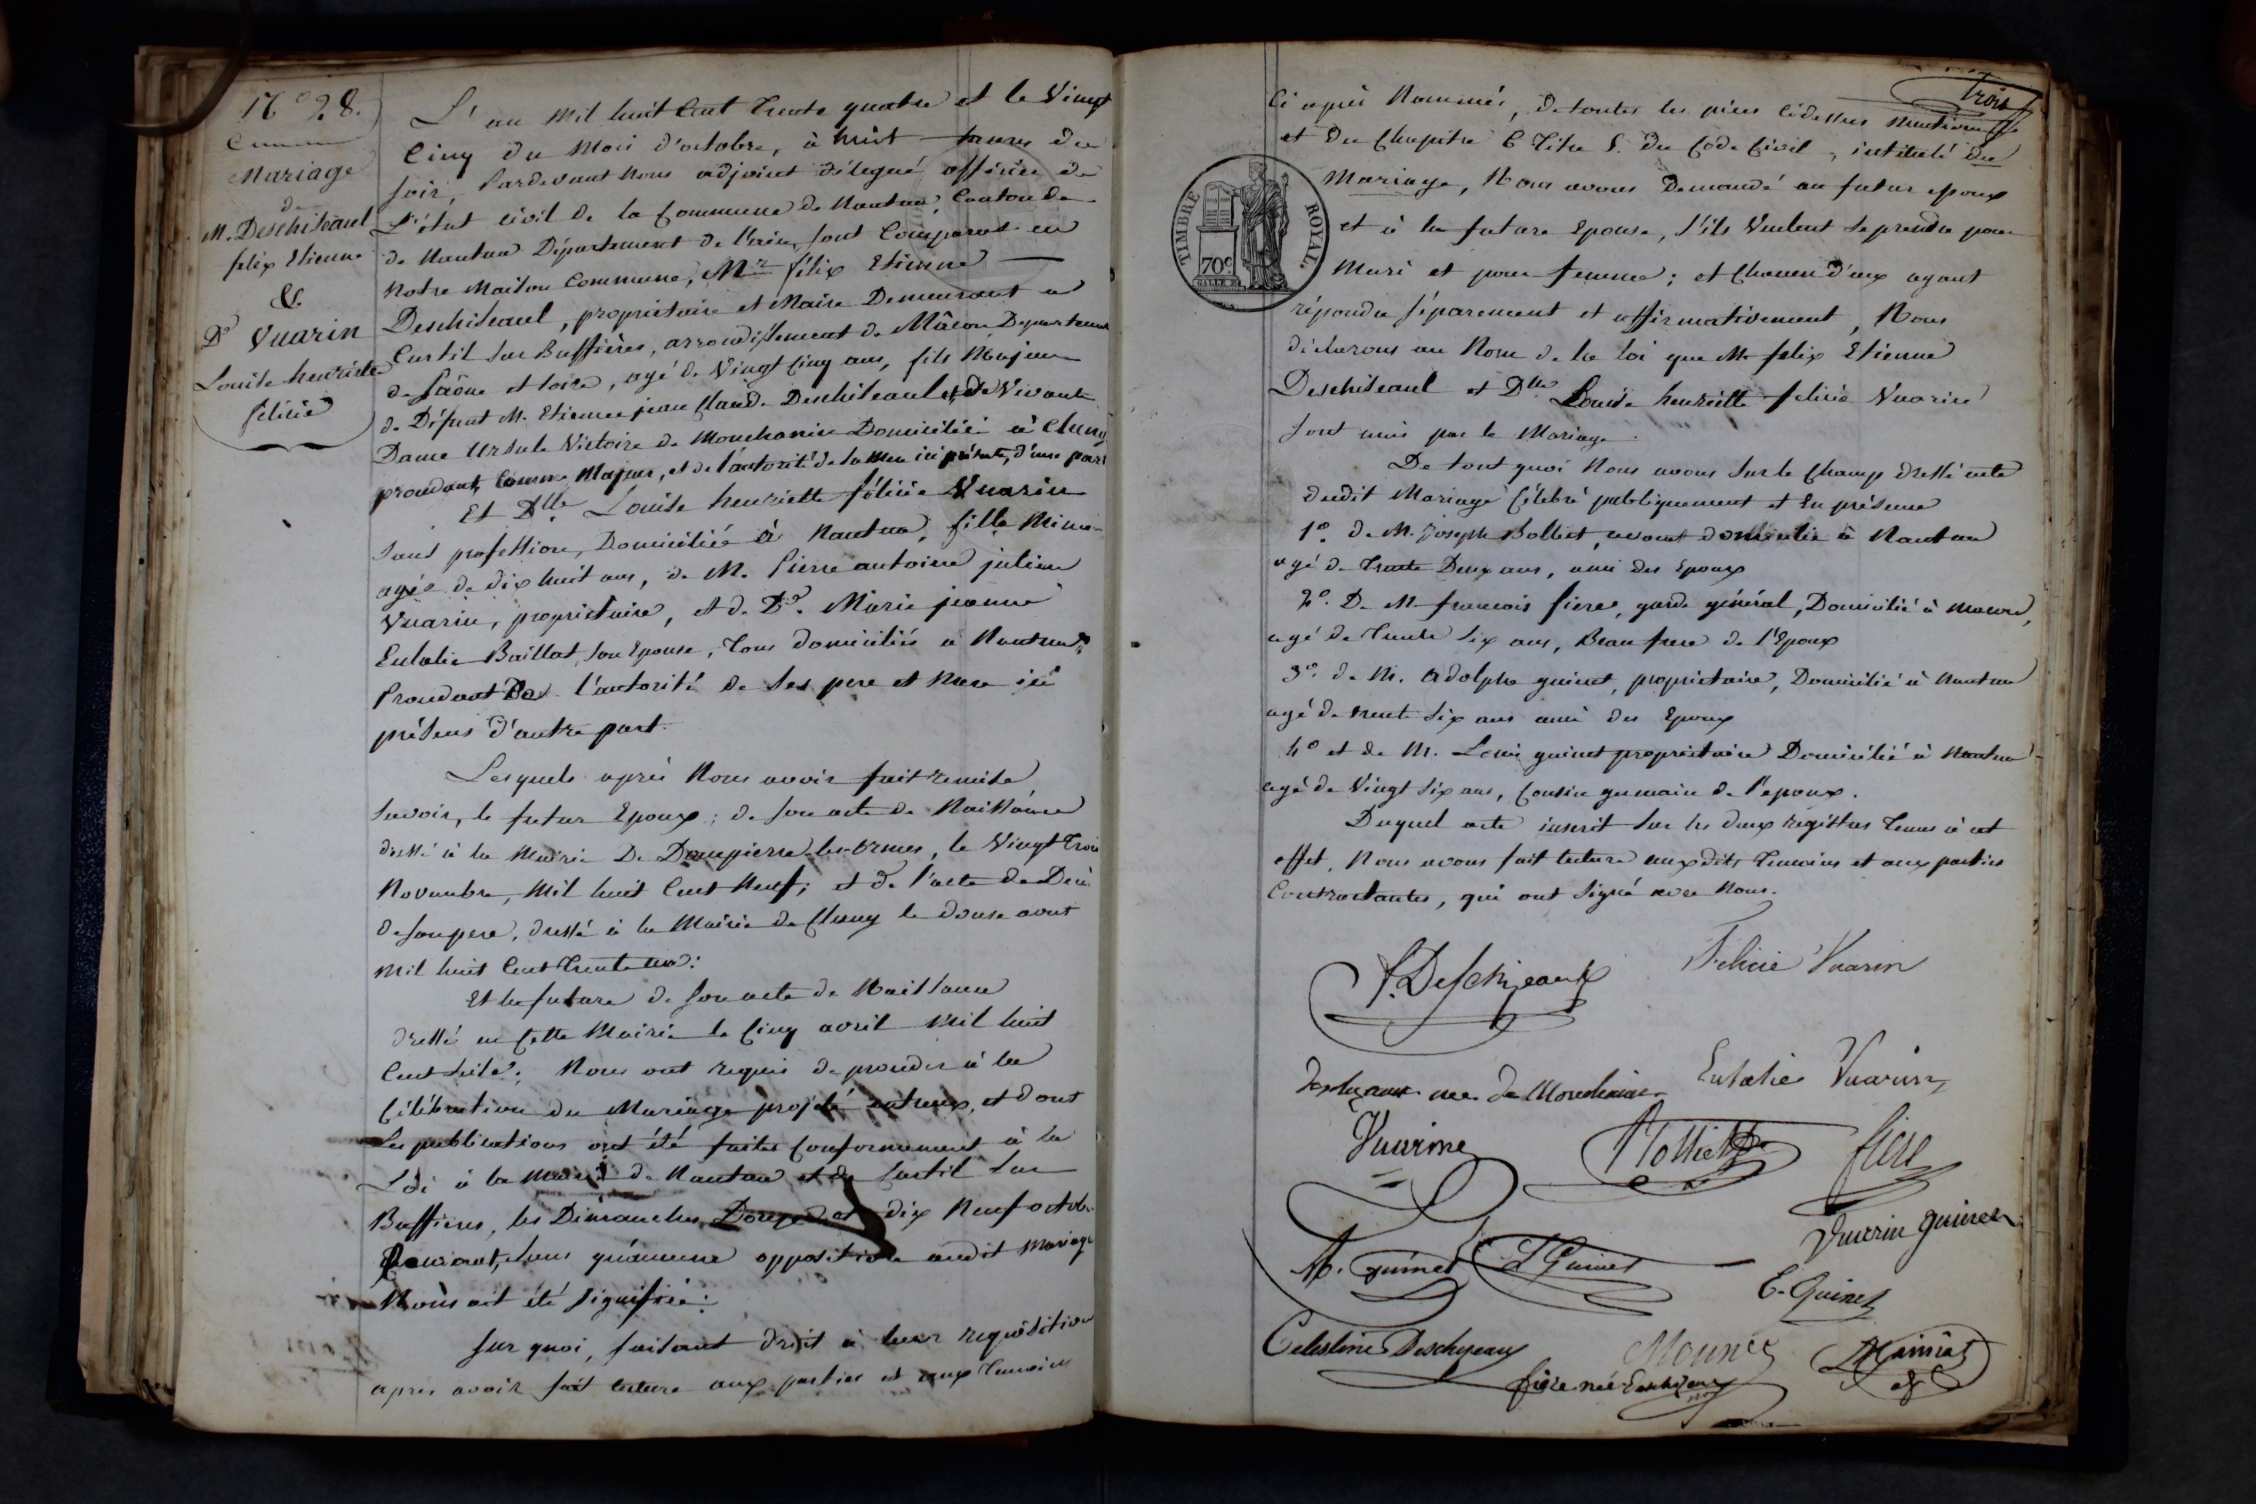 N° 28.
Mariage
de
M. Deschiseaul
felix Etienne
&
De Vuarin
Louise henriette
felicie
L'an Mil huit Cent Trente quatre et le Vingt
Cinq du Mois d'octobre, à huit heures du
soir, Pardevant Nous adjoint délégué officier de
L'état civil de la Commune de Nantua, Canton de
de Nantua Département de l'ain, sont Comparus en
Notre Maison Commune, Mr félix Etienne
Deschiseaul, propriétaire et Maire Demeurant a
Curtil sur Buffières, arrondissement de Mâcon Departement
de Saône et loire, agé de Vingt Cinq ans, fils Majeur
de Défunt M. Etienne jean Claude Deschiseaul et de Vivante
Dame Ursule Victoire de Mouchanin Domiciliée à Cluny
procédant Comme Majeur, et de l'autorité de sa Mere ici présente, d'une part
Et Dlle Louise henriette félicie Vuarin
sans profession, Domiciliée à Nantua, fille Mineure
agée de dix huit ans, de M. Pierre antoine julien
Vuarin, propriétaire, et de De Marie jeanne
Eulalie Baillat son Epouse, Tous domiciliés a Nantua;
Procédant De l'autorité de ses pere et Mere ici
présens d'autre part.
Lesquels après Nous avoir fait remise
savoir, le futur Epoux: de son acte de Naissance
dressé à la Mairie De Dompierre-les-ormes, le Vingt Trois
Novembre, Mil huit Cent Neuf; et de l'acte de Décès
de son pere, dressé à la Mairie de Cluny le douse aout
Mil huit Cent Trente un:
Et la future de son acte de Naissance
dressé en Cette Mairie le Cinq avril Mil huit
Cent seise; Nous ont requis de proceder à la
Célébration du Mariage projeté entreux, et dont
Les publications ont été faites Conformement à la
Loi à la Mairie de Nantua et de Curtil sur
Buffieres, les Dimanches Douze et dix Neuf octobre
Courant, sans qu'aucune opposition audit Mariage
Nous ait été signifiée:
Sur quoi, faisant droit à leur requisition
apres avoir fait lecture aux parties et aux Temoins
trois
Ci après Nommés, de toutes les pièces cidessus Mentionnées
et du Chapitre 6 Titre 5. du Code Civil, intitulé du
Mariage, Nous avons Demandé au futur epoux
et à la future Epouse, s'ils Veulent se prendre pour
Mari et pour femme; et Chacun d'eux ayant
répondu séparement et affirmativement, Nous
déclarons au Nom de la loi que M. felix Etienne
Deschiseaul et Dlle Louise henriette felicie Vuarin
sont unis par le Mariage.
De tout quoi Nous avons sur le Champ dressé acte
dudit Mariage Célébré publiquement et En présence
1° de M. Joseph Bolliet, avocat domicilié à Nantua
agé de Trente Deux ans, ami des Epoux
2° De M. francois fiere, garde général, Domicilié à Macon,
agé de Trente six ans, Beau frere de l'Epoux
3° de M. Adolphe guinet, propriétaire, Domicilié à Nantua
agé de trente six ans ami des Epoux
4° et de M. Louis guinet propriétaire Domicilié à Nantua
agé de Vingt six ans, Cousin germain de l'epoux.
Duquel acte inscrit sur les deux registres Tenus à cet
effet, Nous avons fait lecture aux dits Temoins et aux parties
Contractantes, qui ont signé avec Nous.
TIMBRE ROYAL.
70c
f. Deschizeaux
Félicie Vuarin
deschizeaux nee de Mouchanin
Eulalie Vuarin
Vuarin
fiere
Vuarin guinet
A. guinet
L. Guinet
E. Guinet
Celestine Deschizeaux
fiere née Deschizeaux